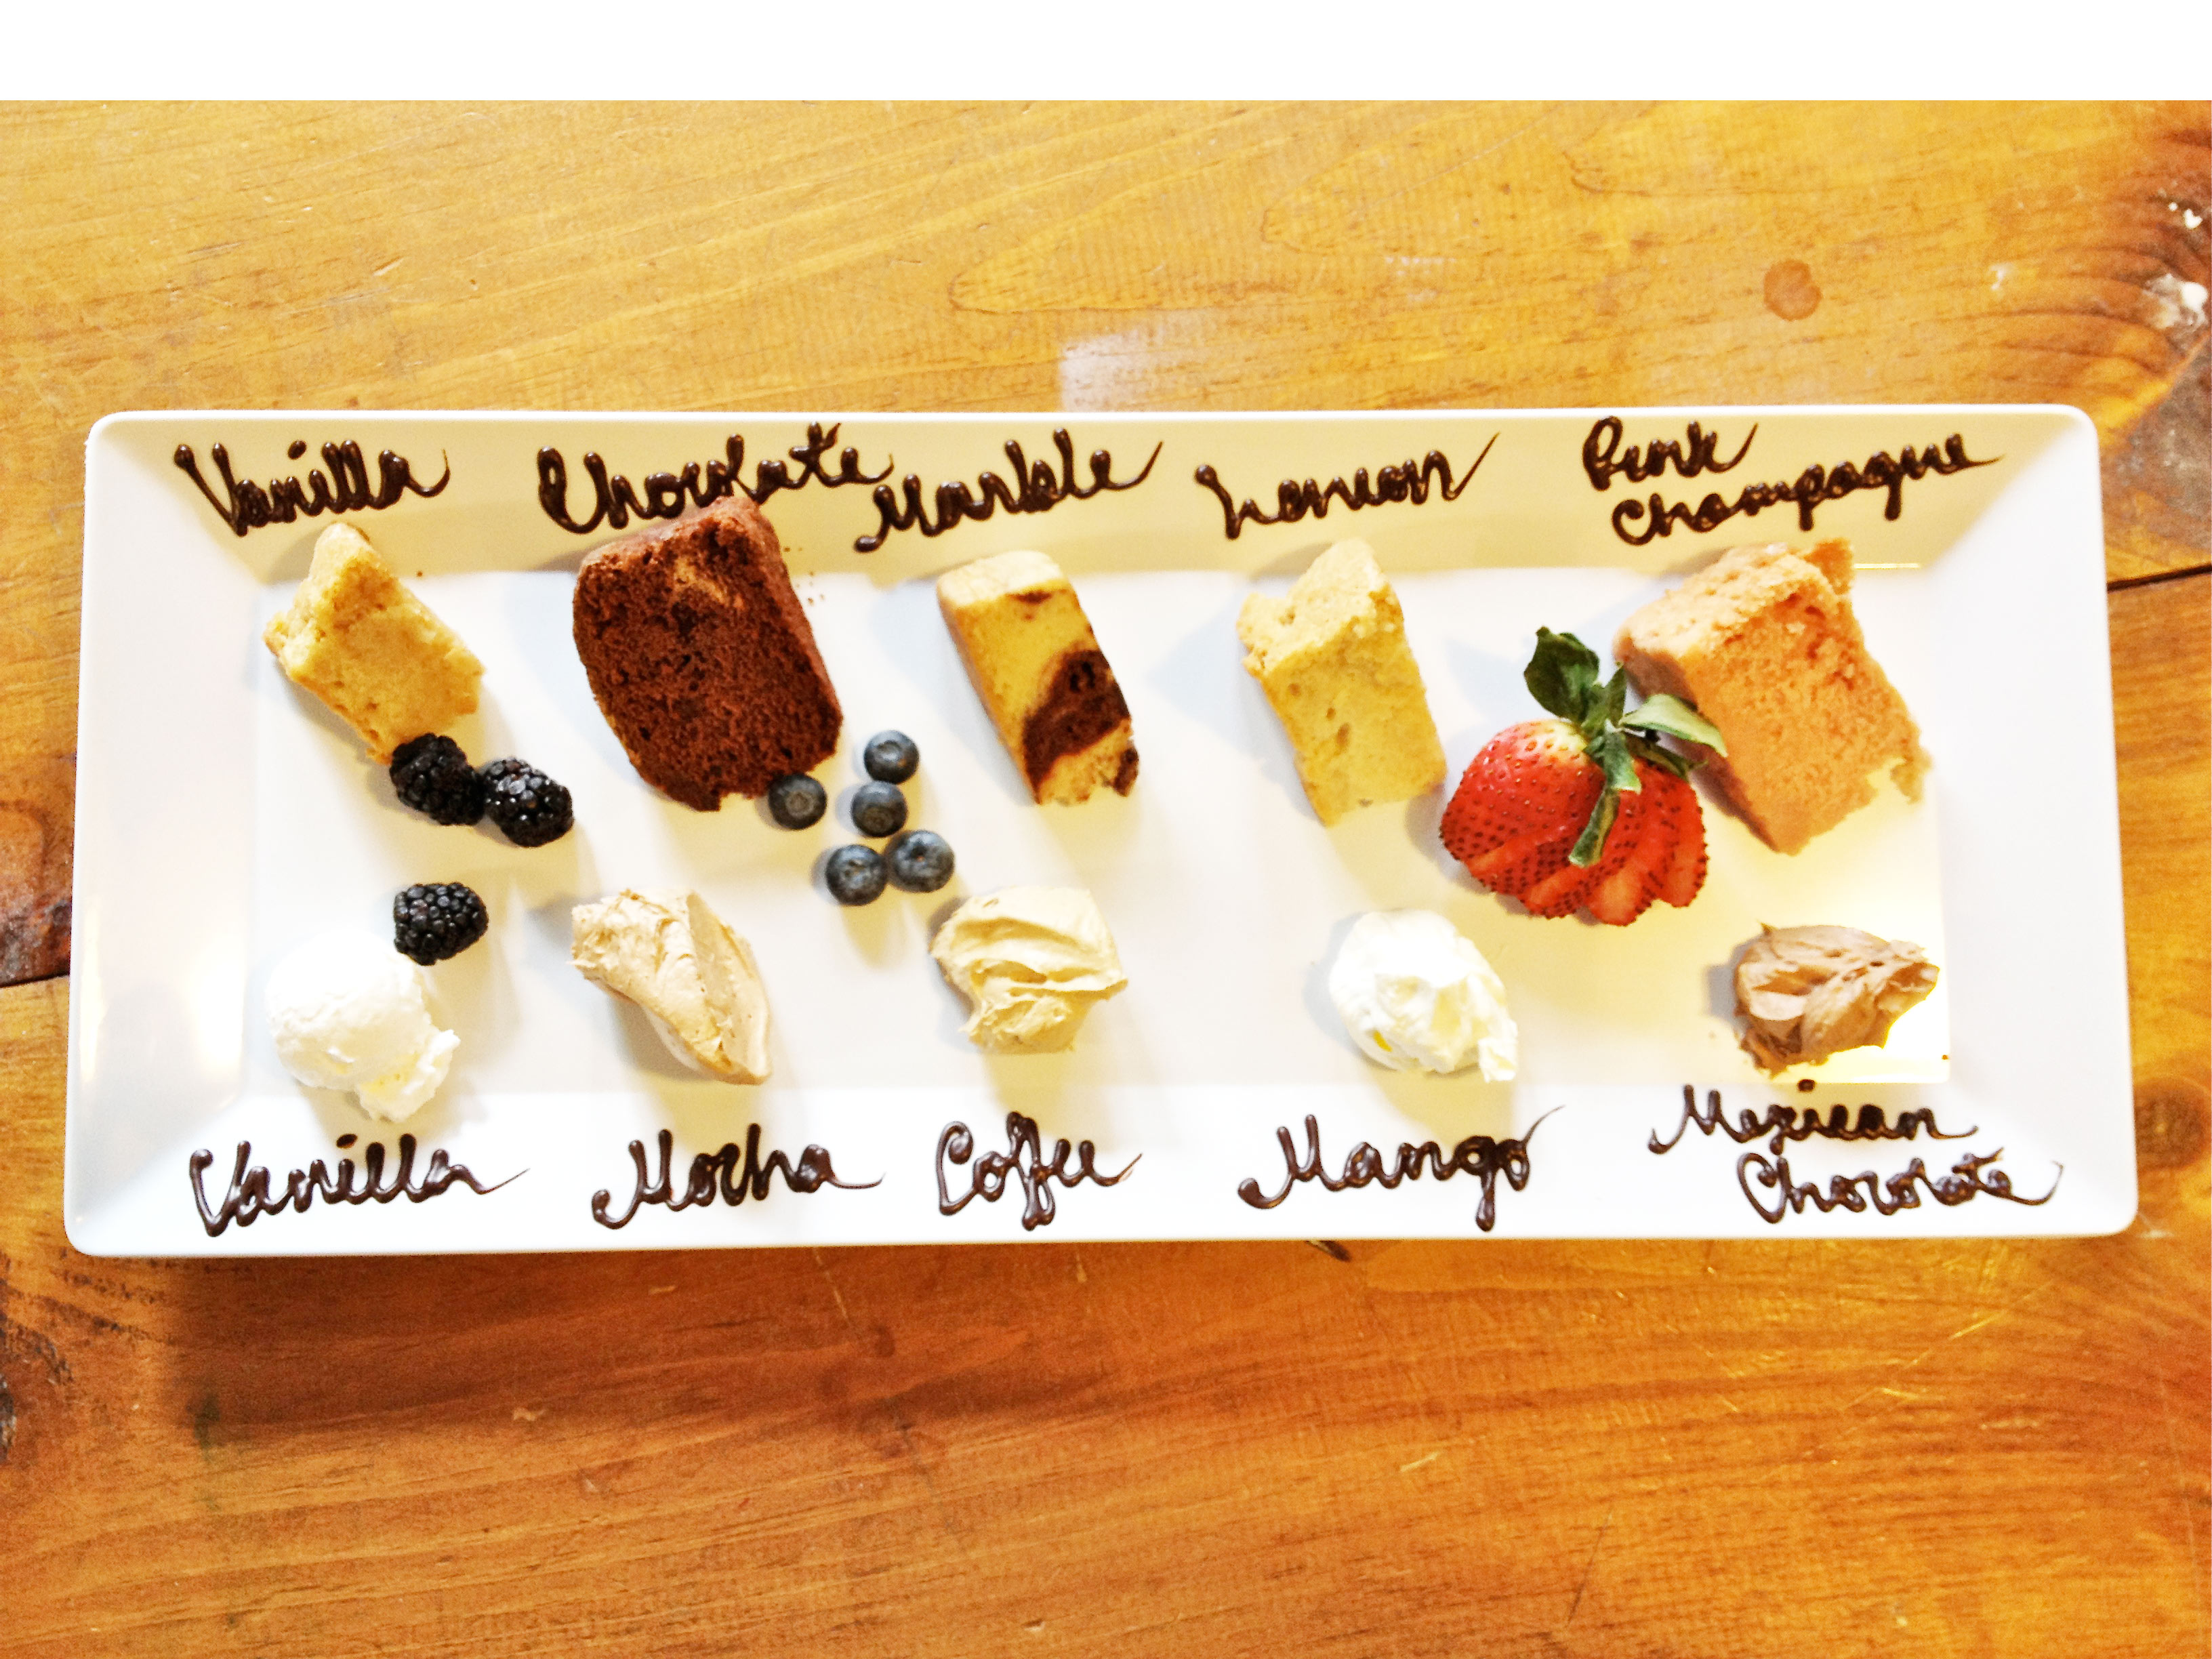 Vanilla Chocolate Marble Lemon Pink
Champagne
Vanilla Mocha Coffee Mango Mexican
Chocolate